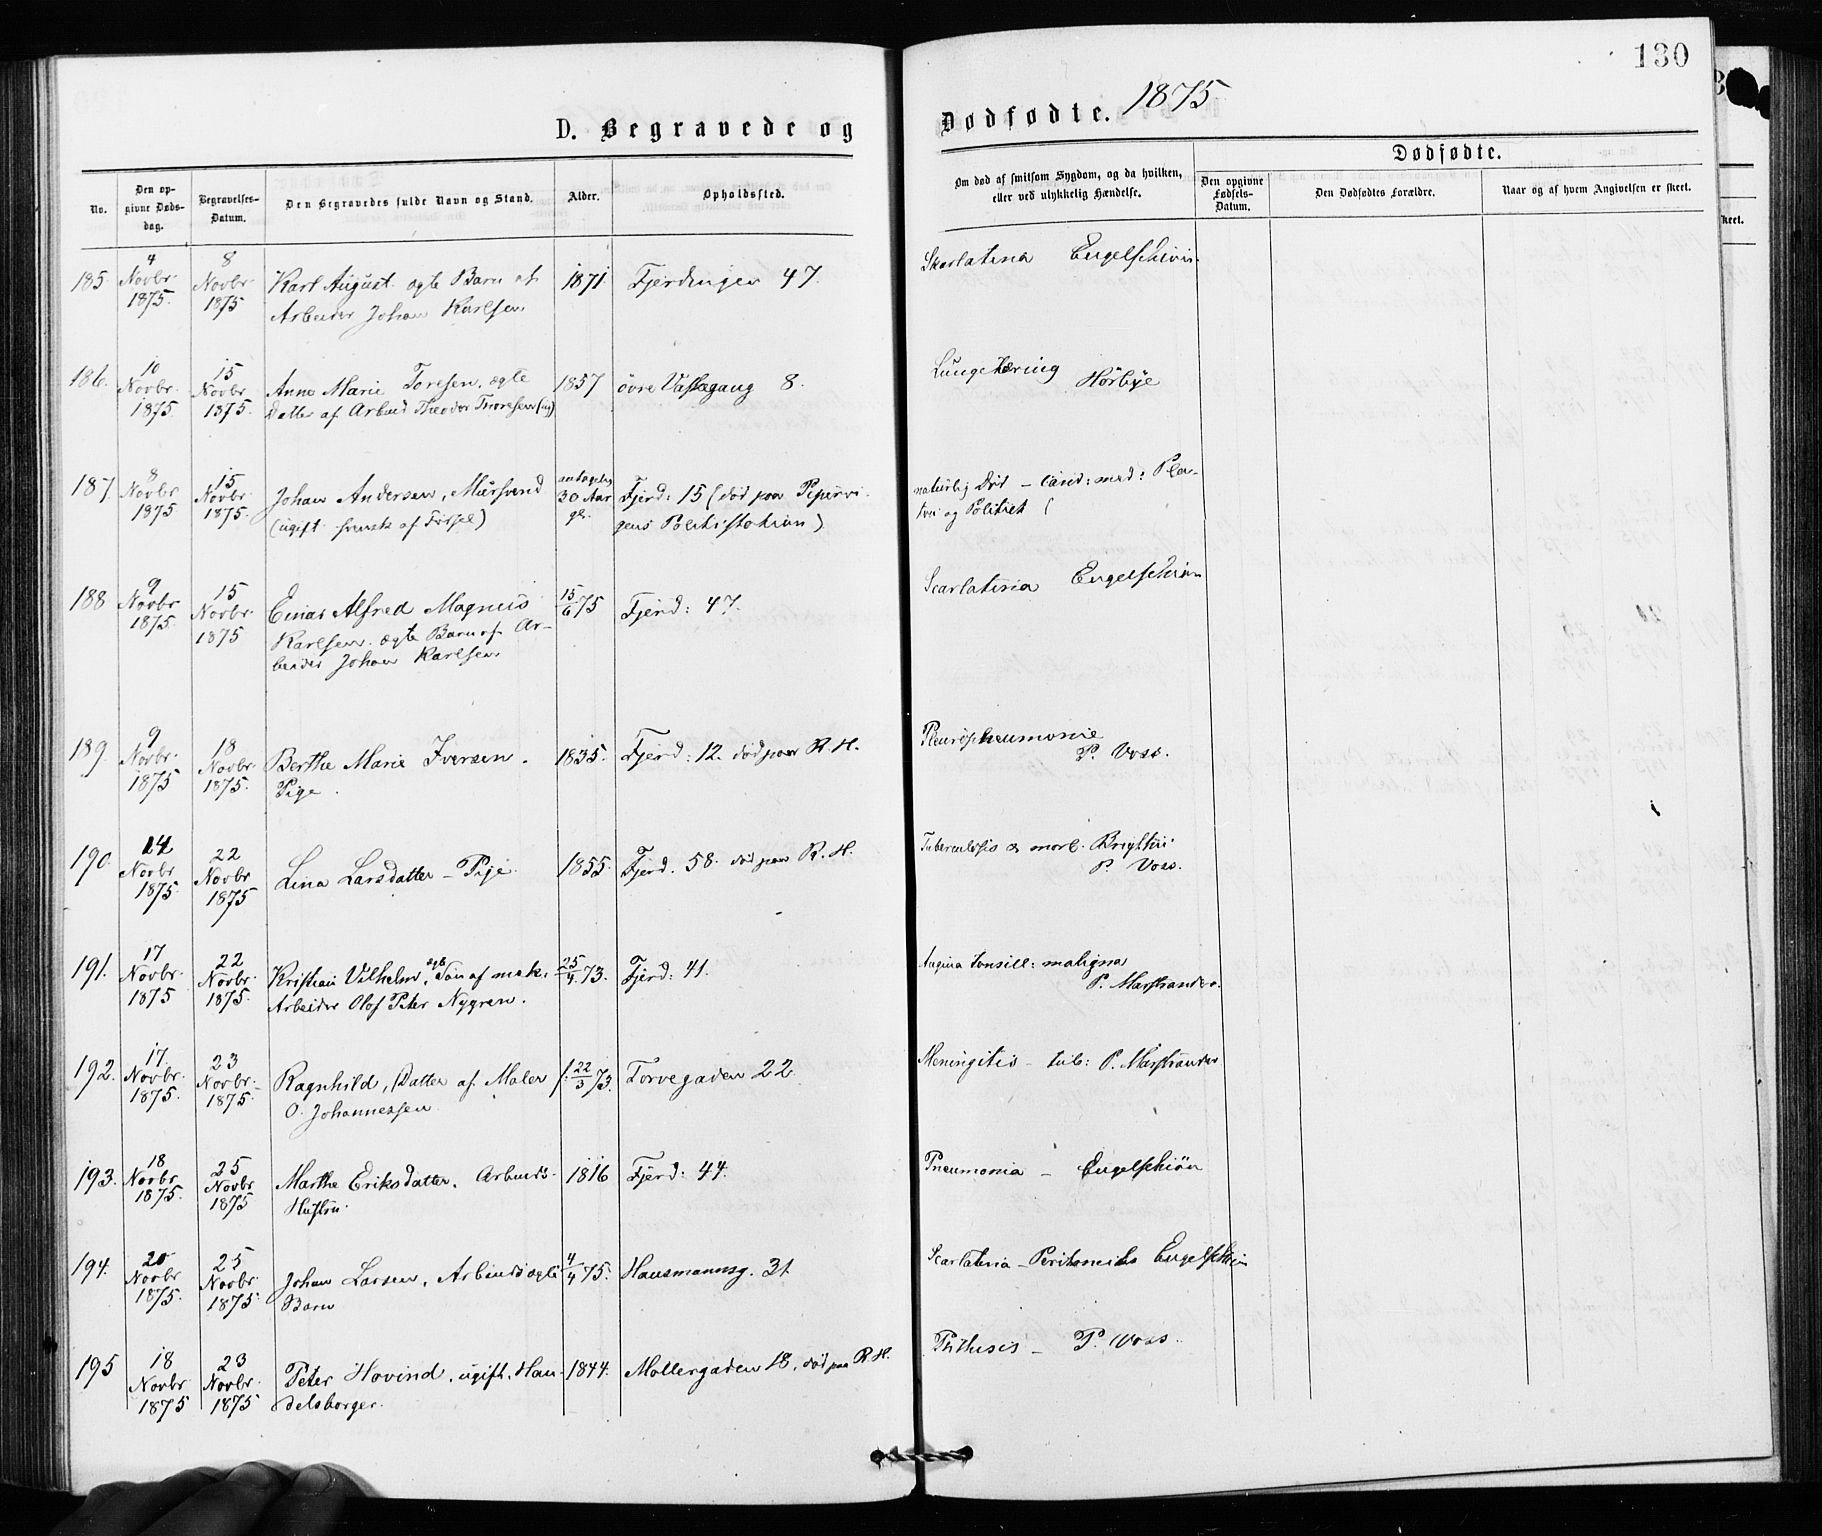 130
D. Begravede og Dødfødte. 1875
No.
Den op-
givne Døds-
dag.
Begravelses-
Datum.
Den Begravedes fulde Navn og Stand.
Alder.
Opholdssted.
Om død af smitsom Sygdom, og da hvilken,
eller ved ulykkelig Hændelse.
Dødfødte.
Den opgivne
Fødsels-
Datum.
Den Dødfødtes Forældre.
Naar og af hvem Angivelsen er skeet.
skeet.
185. 4 Novbr. 1875. 8 Novbr. 1875 Karl August. ægte Barn af 1871. Fjerdingen 47. Skarlatina Engelschiøn.
Arbeider Johan Karlsen
186. 10 Novbr. 1875. 15 Novbr. 1875. Anne Marie Toresen, ægte 1857 øvre Vaskegang 8. Lungetæring Hörbye
Datter af Arbeid Theodor Thoresen
187. 8 Novbr 1875 15 Novbr. 1875. Johan Andersen, Mursvend antagelig 30 Aar gl. Fjerd: 15 (død paa Pipervi- naturlig Død – cand: med:
(ugift svensk af Fødsel) gens Politistation) og Politiet (
188 9 Novbr 1875. 15 Novbr. 1875 Einar Alfred Magnus 15/6 75 Fjerd: 47. Scarlatina Engelschiøn
Karlsen. ægte Barn af Ar-
beider Johan Karlsen
189. 9 Novbr. 1875 18 Novbr 1875. Berthe Marie Iversen. 1835. Fjerd: 12. død paa R. H. Pleuropneumonie
Pige. P. Voss.
190. 14 Novbr 1875. 22 Novbr 1875 Lina Larsdatter – Pige. 1855. Fjerd. 58. død paa R. H. Tuberculosis & morb. Brightii.
P. Voss.
191. 17 Novbr. 1875 22 Novbr. 1875. Kristian Vilhelm, ægte Søn af mek. 25/4 73. Fjerd: 41. Angina tonsill: maligna
Arbeider Olof Peter Nygren. P. Marstrander.
192. 17. Novbr. 1875. 23 Novbr. 1875. Ragnhild, Datter af Maler f. 22/3 73. Torvegaden 22 Meningitis – tub: P. Marstrander
O. Johannessen
193. 18 Novbr. 1875. 25 Novbr 1875 Marthe Eriksdatter. Arbeids- 1816 Fjerd: 44. Pneumonia – Engelschiøn
Hustru.
194. 20 Novbr 1875. 25 Novbr. 1875. Johan Larsen, Arbeids ægte 4/4 75. Hausmannsg. 31. Scarlatina – Peritonitis Engelschiøn
Barn
195 18 Novbr 1875 23 Novbr. 1875 Peter Hovind, ugift, Han- 1844. Møllergaden 18, død paa R. H. Phthisis – P. Voss.
delsborger.